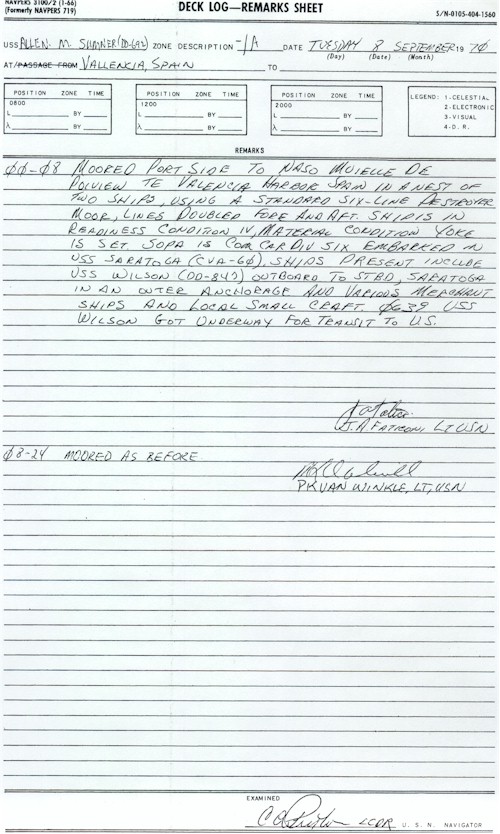 NAVPERS 3100/2 (1-66)
(Formerly NAVPERS 719)
DECK LOG—REMARKS SHEET
S/N-0105-404-1560
USS ALLEN. M. SUMNER (DD-692) ZONE DESCRIPTION -1A DATE TUESDAY 8 SEPTEMBER 19 70
(Day) (Date) (Month)
AT/PASSAGE FROM VALLENCIA, SPAIN TO
POSITION ZONE TIME
0800
L BY
λ BY
POSITION ZONE TIME
1200
L BY
λ BY
POSITION ZONE TIME
2000
L BY
λ BY
LEGEND: 1-CELESTIAL
2-ELECTRONIC
3-VISUAL
4-D. R.
REMARKS
00-08 MOORED PORT SIDE TO NASO MUIELLE DE
POLVIEW TE VALENCIA HARBOR SPAIN IN A NEST OF
TWO SHIPS, USING A STANDARD SIX-LINE DESTROYER
MOOR, LINES DOUBLED FORE AND AFT. SHIP IS IN
READINESS CONDITION IV, MATERIAL CONDITION YOKE
IS SET. SOPA IS COMCARDIV SIX EMBARKED IN
USS SARATOGA (CVA-60). SHIPS PRESENT INCLUDE
USS WILSON (DD-847) OUTBOARD TO STBD, SARATOGA
IN AN OUTER ANCHORAGE AND VARIOUS MERCHANT
SHIPS AND LOCAL SMALL CRAFT. 0639 USS
WILSON GOT UNDERWAY FOR TRANSIT TO U.S.
J.A. FATICONI, LT USN
08-24 MOORED AS BEFORE
PK VAN WINKLE, LT, USN
EXAMINED
LCDR U. S. N. NAVIGATOR